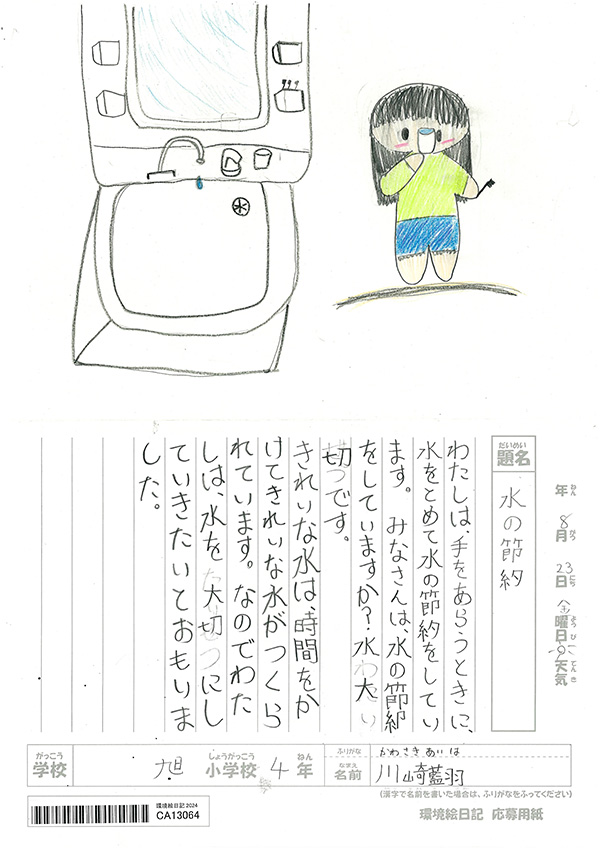 年 8月 23日 金曜日 天気
ねん がつ にち ようび てんき
だいめい
題名
水の節約
わたしは、手をあらうときに、
水をとめて水の節約をしてい
ます。みなさんは水の節約
をしていますか?水大
切です。
きれいな水は、時間をか
けてきれいな水がつくら
れています。なのでわた
しは、水を大切にし
ていきたいとおもいま
した。
がっこう しょうがっこう ねん
学校 旭 小学校 4年
ふりがな かわさき あいは
なまえ
名前 川崎藍羽
(漢字で名前を書いた場合は、ふりがなをふってください)
環境絵日記2024
CA13064
環境絵日記 応募用紙